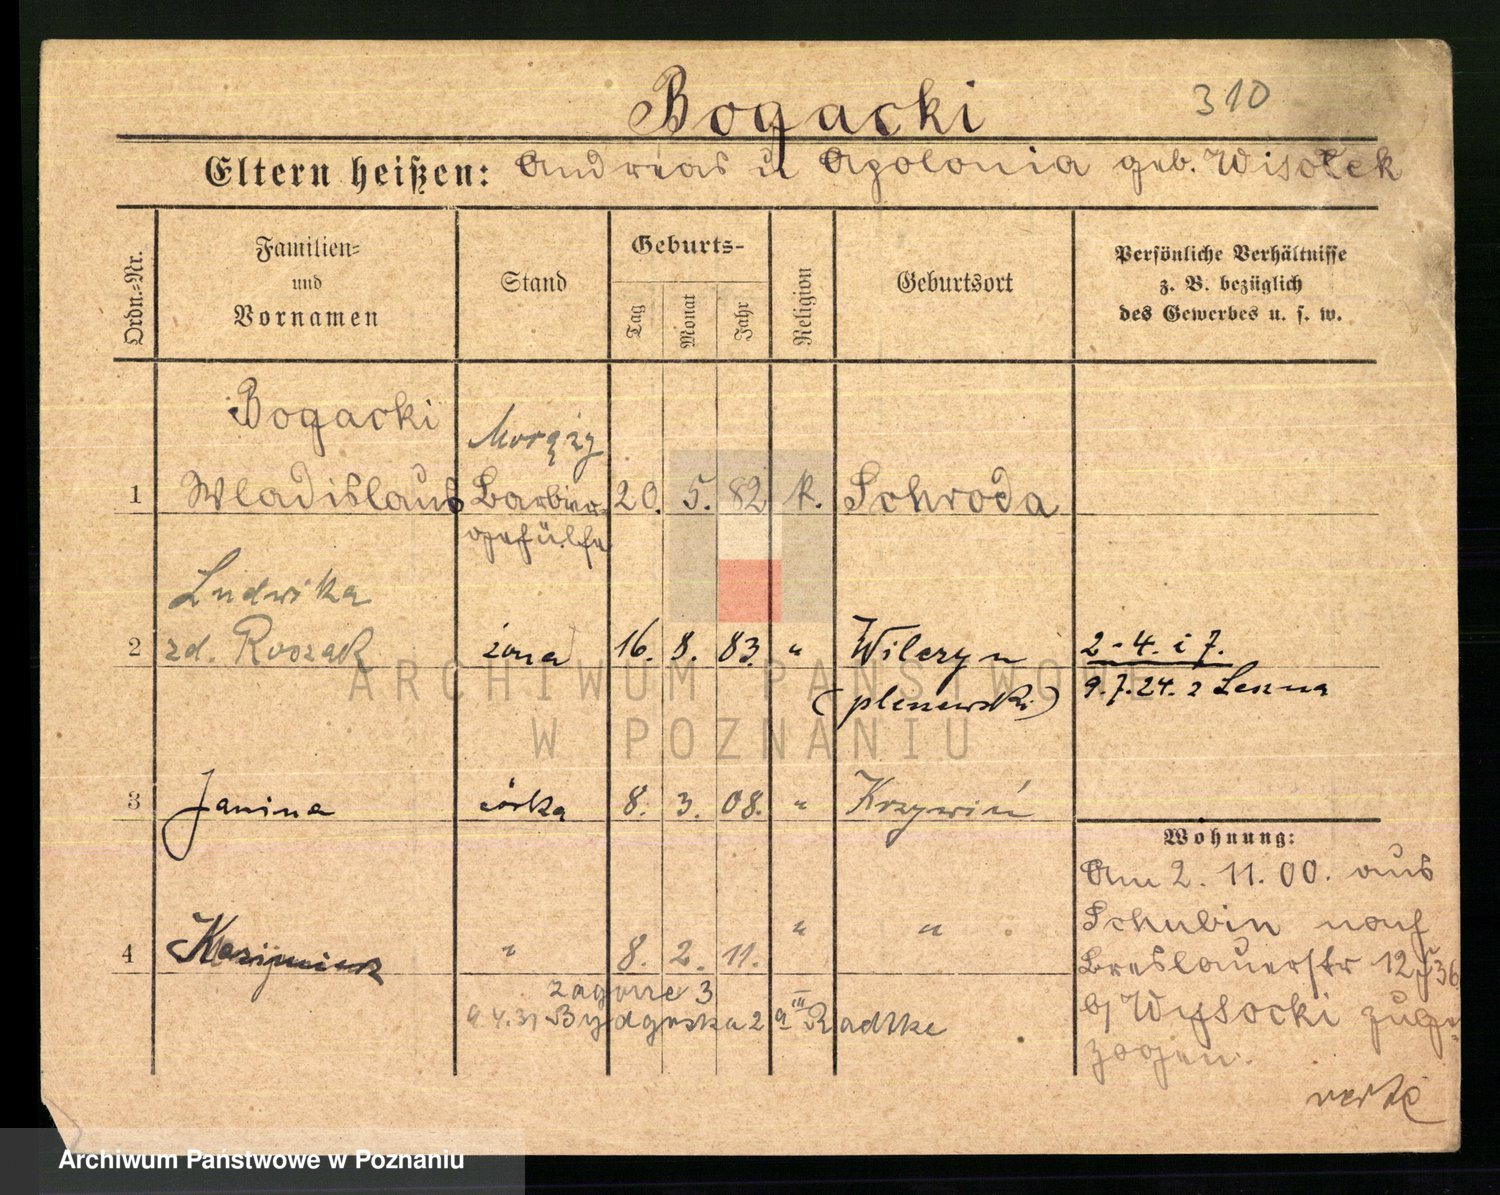 Bogacki
310
Eltern heißen: Andreas u Apolonia geb. Wisolek
Ordn.-Nr.
Familien-
und
Vornamen
Stand
Geburts-
Tag
Monat
Jahr
Religion
Geburtsort
Persönliche Verhältnisse
z. B. bezüglich
des Gewerbes u. s. w.
Bogacki
1 Wladislaus
Barbier-
gehülfe
20. 5. 82 k. Schroda
Ludwika
2 zd. Roszak żona 16. 8. 83. " Wilczyn
(pleszewski)
2 - 4. i 7.
9.7.24. z Leszna
3 Janina córka 8. 3. 08. " Krzywiń
4 Kazimierz " 8. 2. 11. " "
Zagórze 3
9.4.31 Bydgoska 2 III Radtke
Wohnung:
Am 2. 11. 00. aus
Schubin nach
Breslauerstr 12/36
b/ Wysocki zuge-
zogen.
verte
ARCHIWUM PAŃSTWOWE
W POZNANIU
Archiwum Państwowe w Poznaniu